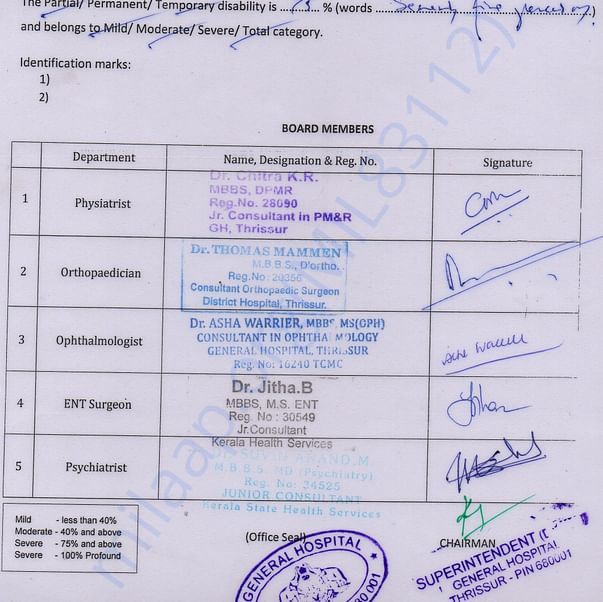 The Partial/ Permanent/ Temporary disability is ...75... % (words ...Seventy five percent only.)
and belongs to Mild/ Moderate/ Severe/ Total category.
Identification marks:
1)
2)
BOARD MEMBERS
Department Name, Designation & Reg. No. Signature
1 Physiatrist
Dr. Chitra K.R.
MBBS, DPMR
Reg.No. 28090
Jr. Consultant in PM&R
GH, Thrissur
2 Orthopaedician
Dr. THOMAS MAMMEN
M.B.B.S., D'ortho.
Reg.No: 20356
Consultant Orthopaedic Surgeon
District Hospital, Thrissur.
3 Ophthalmologist
Dr. ASHA WARRIER, MBBS, MS(OPH)
CONSULTANT IN OPHTHALMOLOGY
GENERAL HOSPITAL, THRISSUR
Reg. No: 16240 TCMC
Asha Warrier
4 ENT Surgeon
Dr. Jitha.B
MBBS, M.S. ENT
Reg. No : 30549
Jr.Consultant
Kerala Health Services
5 Psychiatrist
ANAND.M.
M.B.B.S. MD (Psychiatry)
Reg. No: 34525
JUNIOR CONSULTANT
Kerala State Health Services
Mild - less than 40%
Moderate - 40% and above
Severe - 75% and above
Severe - 100% Profound
(Office Seal)
CHAIRMAN
GENERAL HOSPITAL
680 001
SUPERINTENDENT
GENERAL HOSPITAL
THRISSUR - PIN 680001